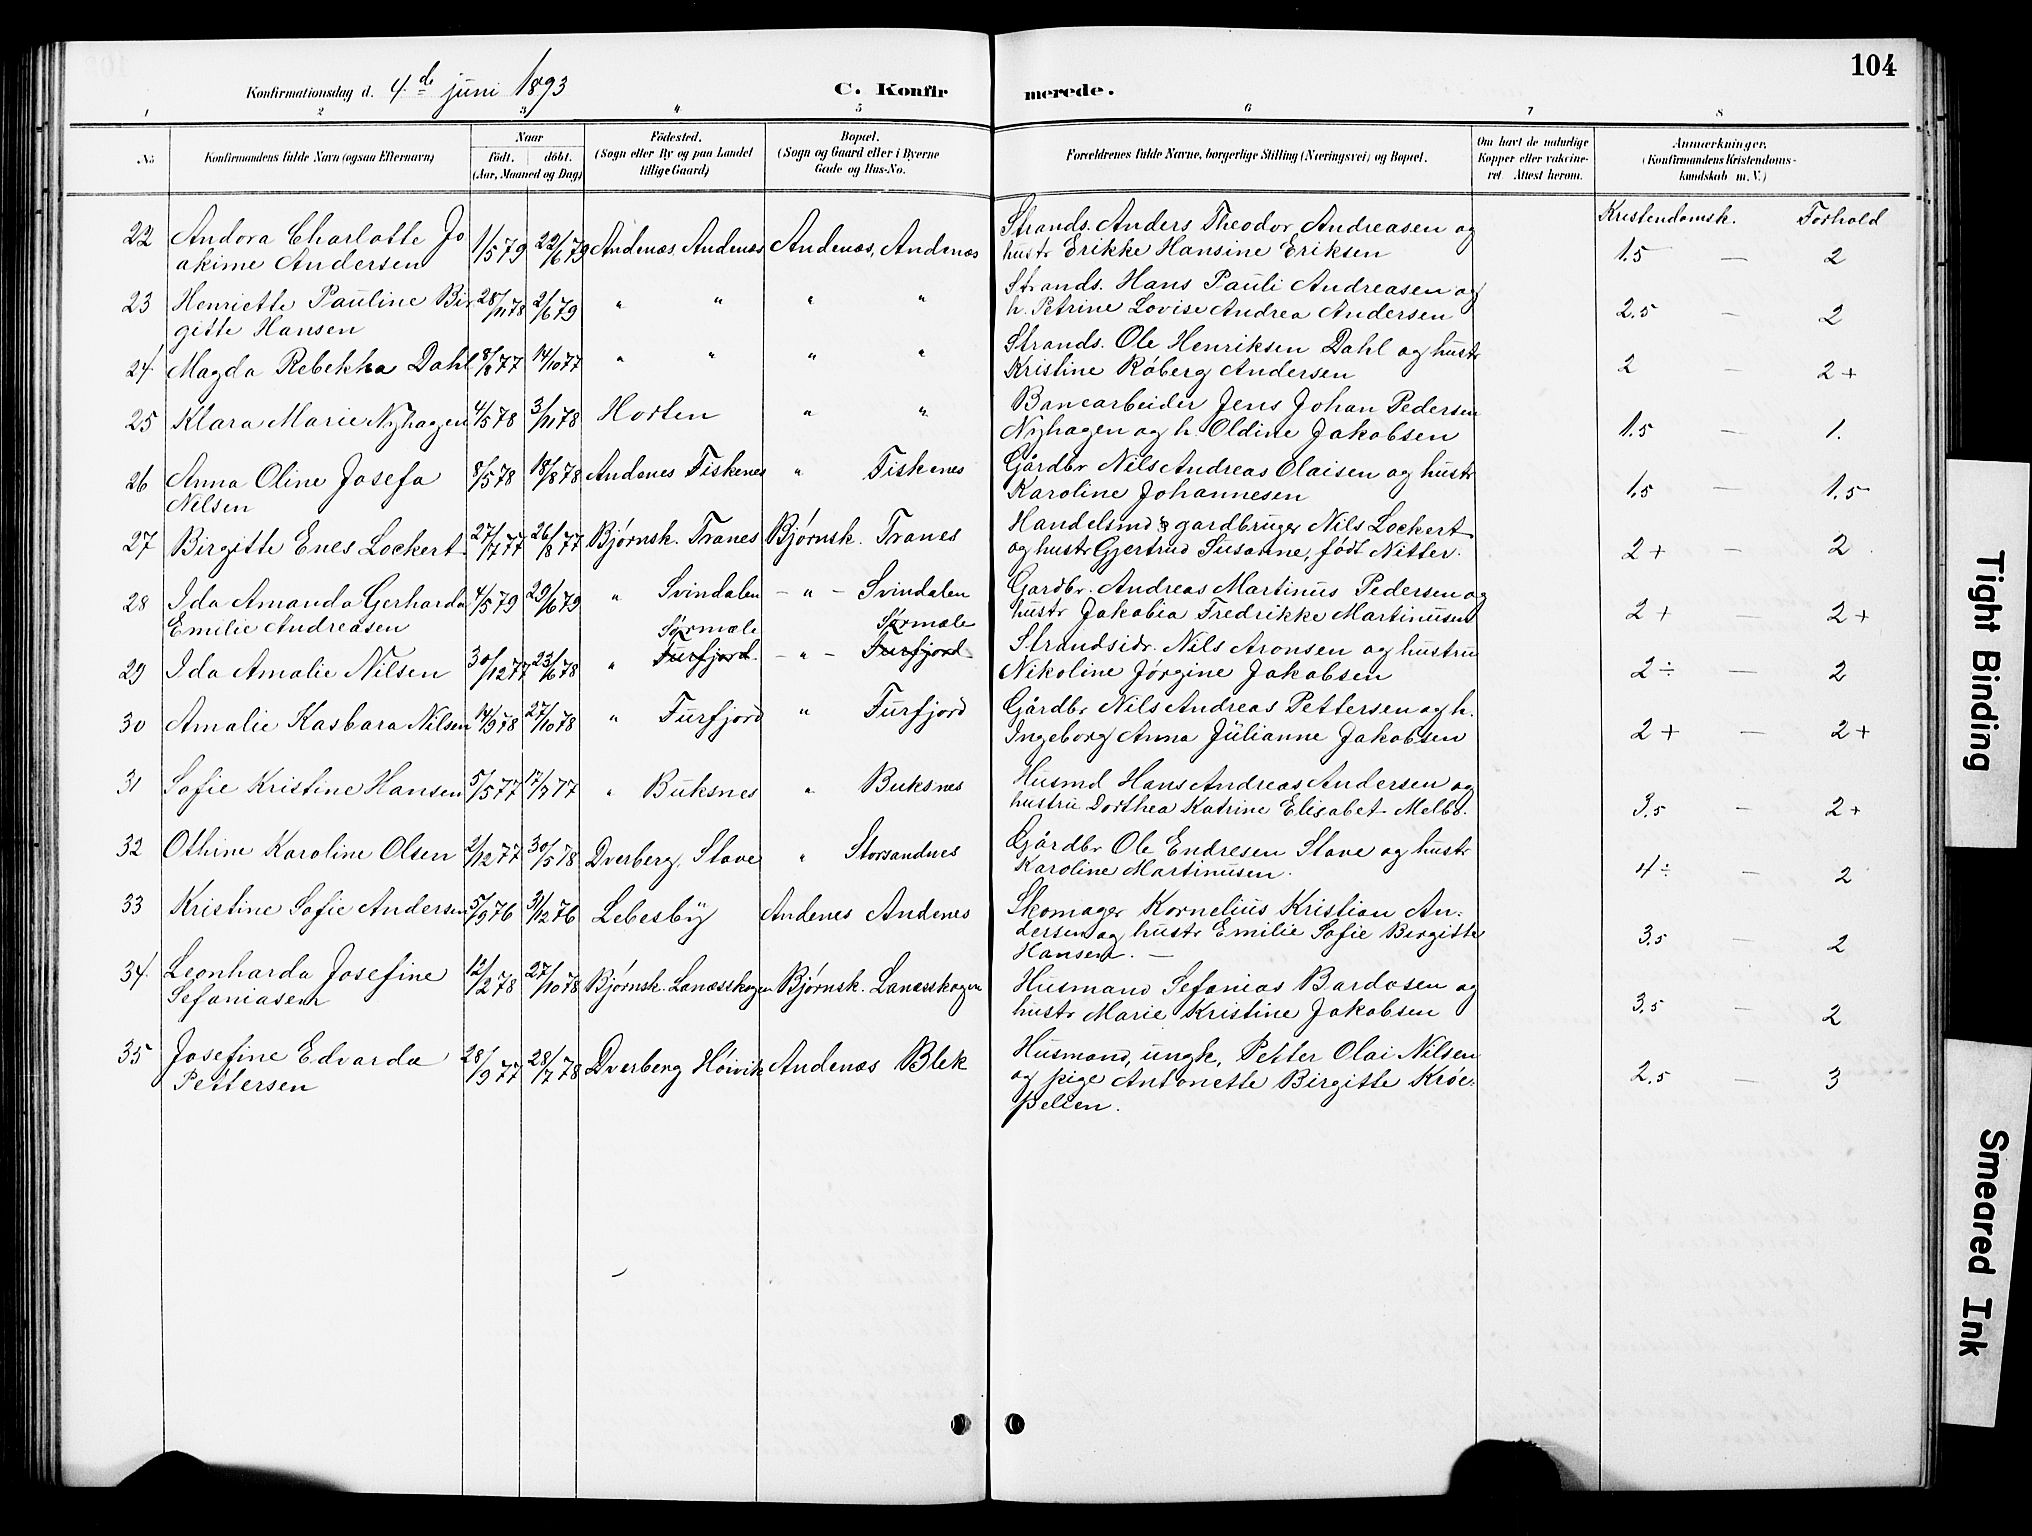 104
Konfirmationsdag d. 4de juni 1893
C. Konfirmerede.
1 2 3 4 5 6 7 8
No
Konfirmandens fulde Navn (ogsaa Efternavn)
Naar
født. døbt.
(Aar, Maaned og Dag)
Födested.
(Sogn eller By og paa Landet
tillige Gaard)
Bopæl.
(Sogn og Gaard eller i Byerne
Gade og Hus-No.
Forældrenes fulde Navne, borgerlige Stilling (Næringsvei) og Bopæl.
Om havt de naturlige
Kopper eller vaccine-
ret Attest herom.
Anmærkninger.
(Konfirmandens Kristendoms-
kundskab m. V.)
Kristendomsk. Forhold
22 Andora Charlotte Jo 1/5 79 22/6 79 Andenæs, Andenæs Andenæs, Andenæs Strands. Anders Theodor Andreasen og
akime Andersen hustr Erikke Hansine Eriksen 1.5 — 2
23 Henriette Pauline Bir 28/11 78 2/6 79 " " " " Strands. Hans Pauli Andreasen og
gitte Hansen h. Petrine Lovise Andrea Andersen 2.5 — 2
24 Magda Rebekka Dahl 8/8 77 14/10 77 " " " " Strands. Ole Henriksen Dahl og hustr
Kristine Røberg Andersen 2 — 2+
25 Klara Marie Nyhagen 4/5 78 3/11 78 Horten " " Banearbeider Jens Johan Pedersen
Nyhagen og h. Oldine Jakobsen 1.5 — 1.
26 Anna Oline Josefa 8/5 78 18/8 78 Andenes Fiskenes " Fiskenes Gårdbr Nils Andreas Olaisen og hustr
Nilsen Karoline Johannesen 1.5 — 1.5
27 Birgitte Enes Lockert 27/7 77 26/8 77 Bjørnsk. Tranes Bjørnsk. Tranes Handelsmd & gardbruger Nils Lockert
og hustr Gjertrud Susanne, født Nitter. 2+ — 2
28 Ida Amanda Gerharda 4/5 79 29/6 79 " Svindalen — " — Svindalen Gardbr. Andreas Martinus Pedersen og
Emilie Andreasen hustr Jakobia Fredrikke Martinusen 2+ — 2+
Sørmæle Sørmæle
29 Ida Amalie Nilsen 30/12 77 23/6 78 " Furfjord — " — Furfjord Strandsidr. Nils Aronsen og hustru
Nikoline Jørgine Jakobsen 2÷ — 2
30 Amalie Kasbara Nilsen 14/9 78 27/10 78 " Furfjord " Furfjord Gårdbr Nils Andreas Pettersen og h.
Ingeborg Anna Julianne Jakobsen 2+ — 2+
31 Sofie Kristine Hansen 5/5 77 17/7 77 " Buksnes " Buksnes Husmd Hans Andreas Andersen og
hustru Dorthea Katrine Elisabet Melbo. 3.5 — 2+
32 Othine Karoline Olsen 2/12 77 30/5 78 Dverberg, Stave " Storsandnes Gårdbr Ole Endresen Stave og hustr
Karoline Martinusen. 4÷ — 2
33 Kristine Sofie Andersen 5/9 76 31/12 76 Lebesby Andenes Andenes Skomager Kornelius Kristian An-
dersen og hustr Emilie Sofie Birgitte
Hansen. — 3.5 — 2
34 Leonharda Josefine 12/2 78 27/10 78 Bjørnsk. Lanæsskogen Bjørnsk. Lanæsskogen Husmand Sefanias Bardosen og
Sefaniasen hustr Marie Kristine Jakobsen 3.5 — 2
35 Josefine Edvarda 28/9 77 28/7 78 Dverberg Høivik Andenæs Blek Husmand, ungk, Petter Olai Nilsen
Pettersen og pige Antonette Birgitte Krøe-
pelien. 2.5 — 3
Tight Binding
Smeared Ink